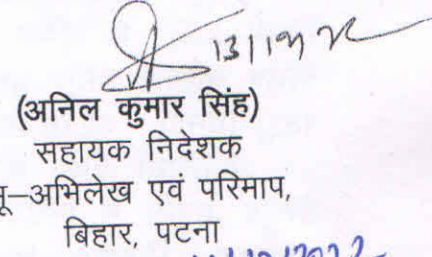 (अनिल कुमार सिंह)
सहायक निदेशक
भू–अभिलेख एवं परिमाप,
बिहार, पटना